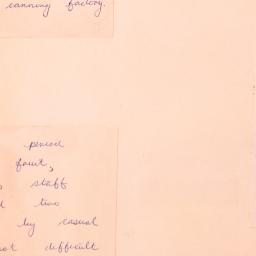 canning factory.
period
fact,
staff
two
by casual
not difficult